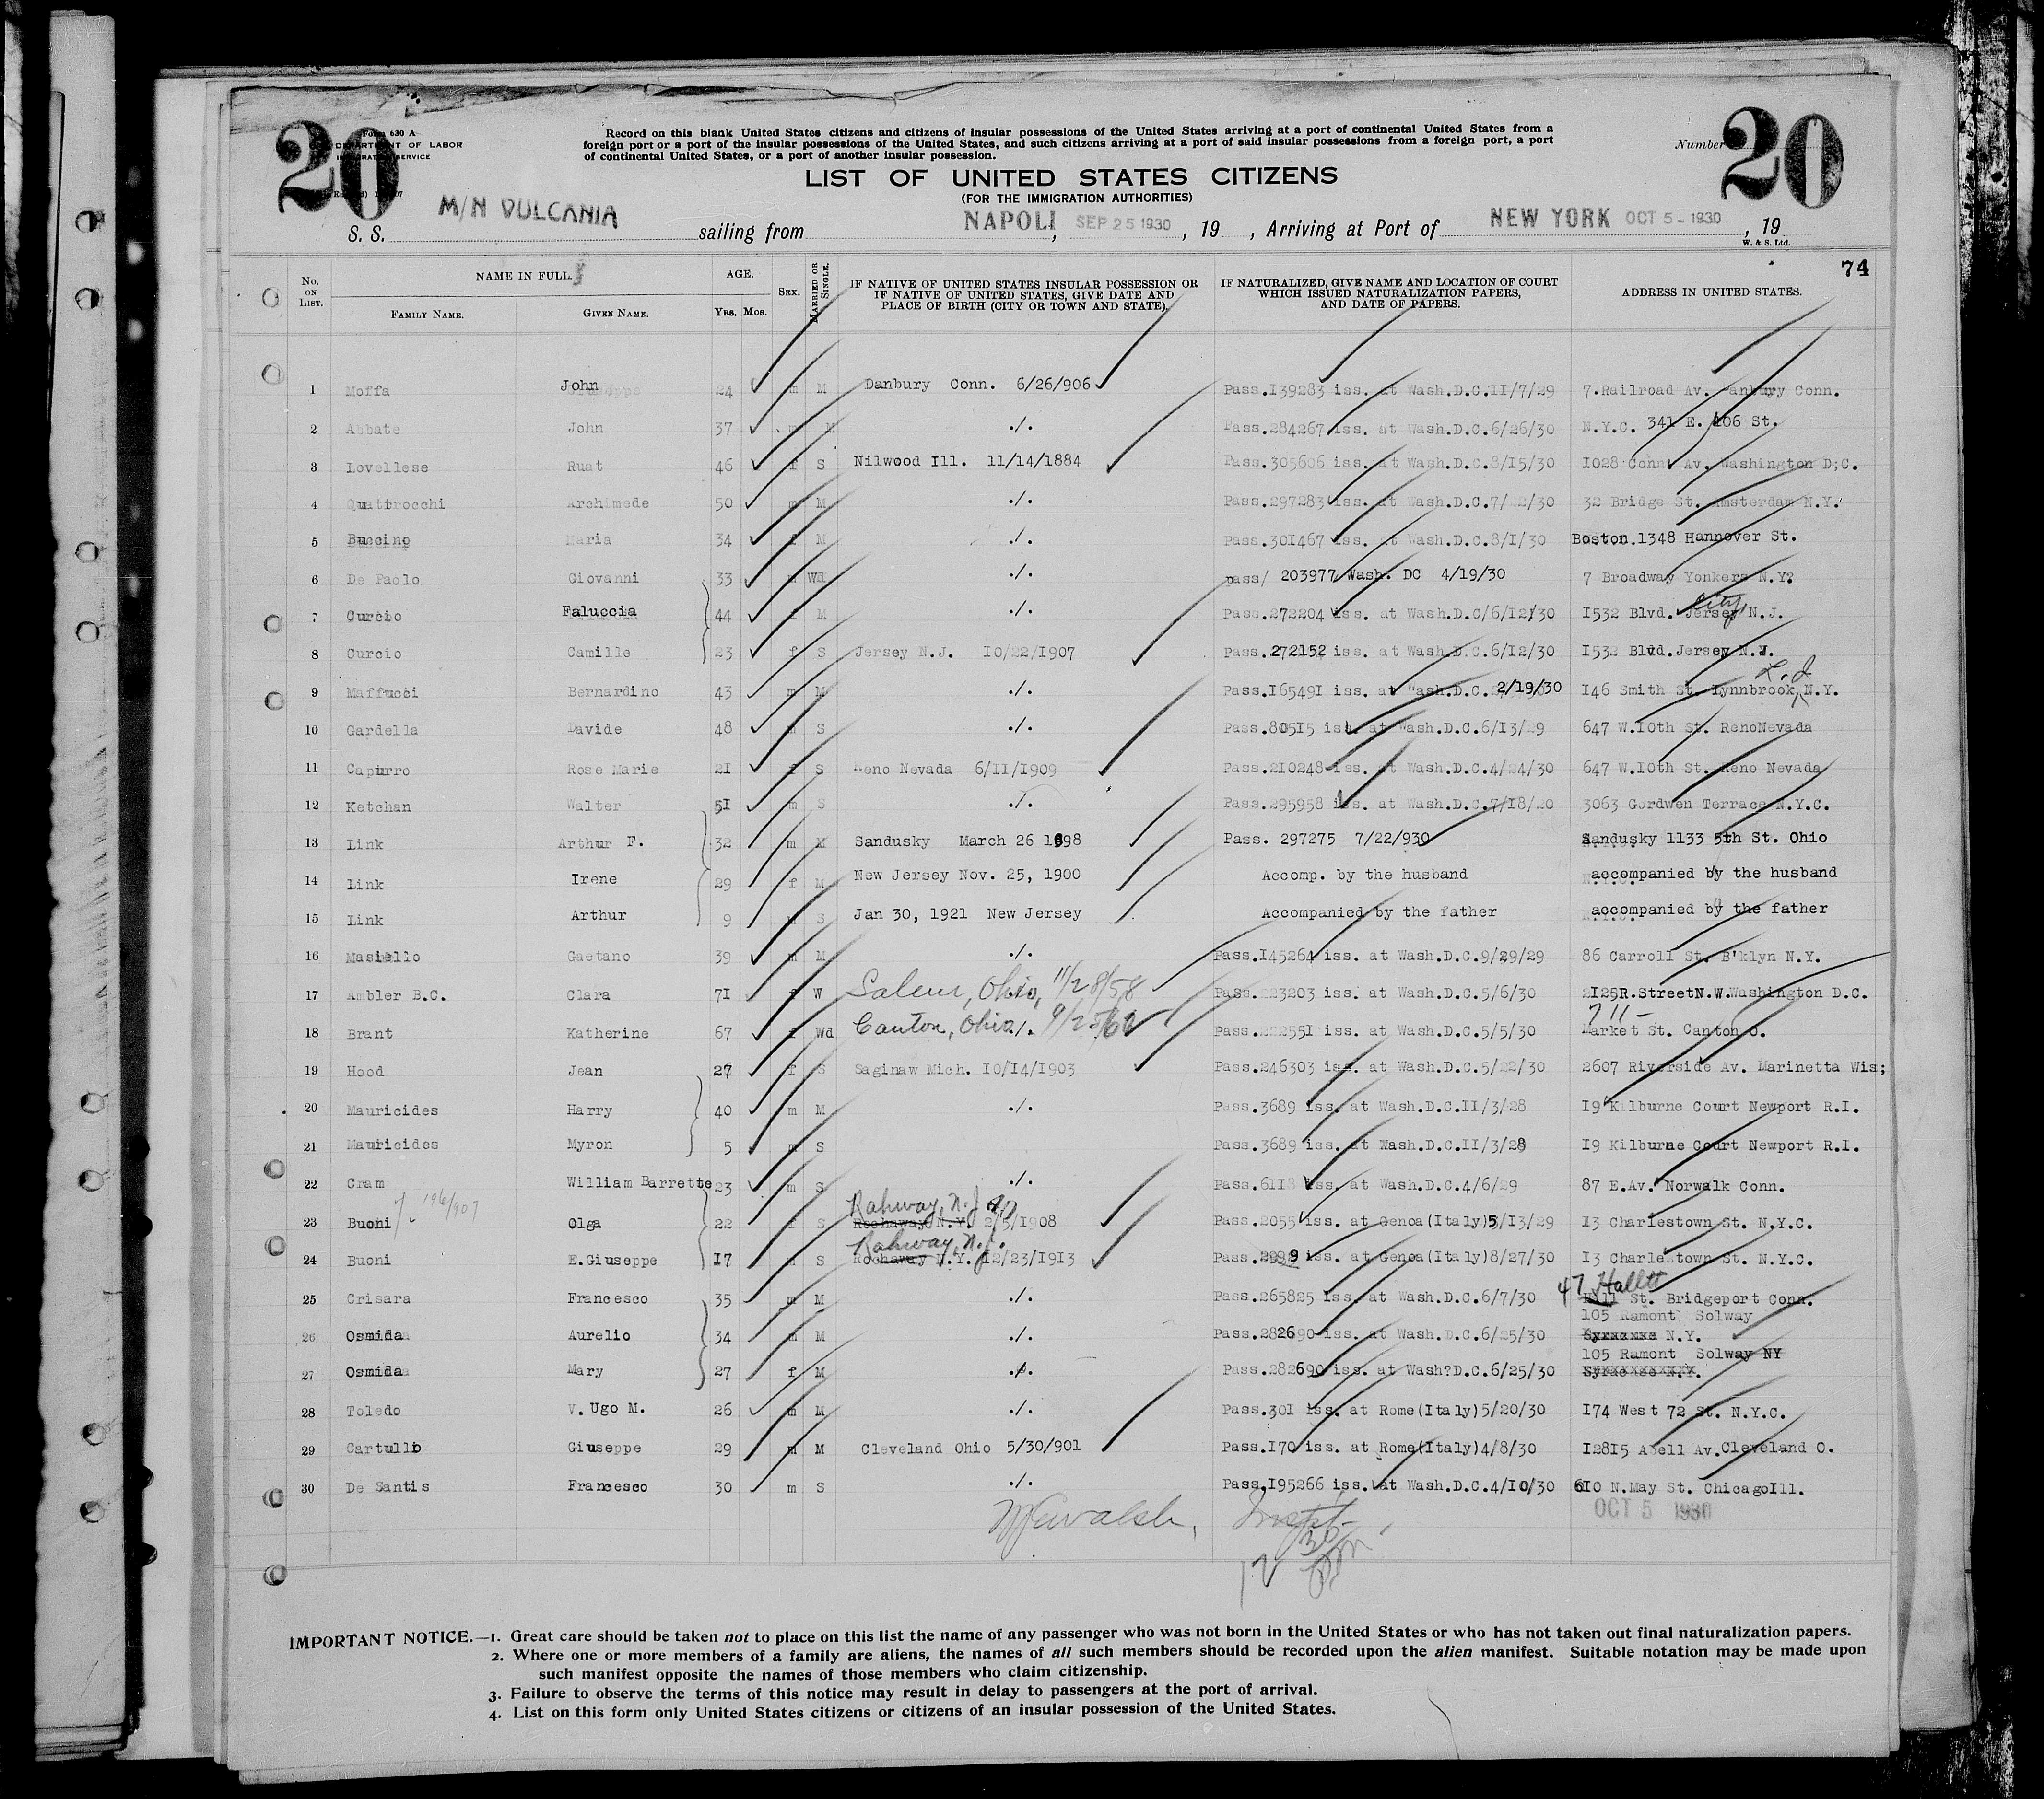 20
Form 630 A
DEPARTMENT OF LABOR
IMMIGRATION SERVICE
Record on this blank United States citizens and citizens of insular possessions of the United States arriving at a port of continental United States from a
foreign port or a port of the insular possessions of the United States, and such citizens arriving at a port of said insular possessions from a foreign port, a port
of continental United States, or a port of another insular possession.
Number 20
LIST OF UNITED STATES CITIZENS
(FOR THE IMMIGRATION AUTHORITIES)
S. S. M/N VULCANIA sailing from NAPOLI, SEP 25 1930, 19 , Arriving at Port of NEW YORK OCT 5 - 1930, 19
W. & S. Ltd.
74
No. ON LIST. NAME IN FULL. FAMILY NAME. GIVEN NAME. AGE. YRS. MOS. SEX. MARRIED OR SINGLE. IF NATIVE OF UNITED STATES INSULAR POSSESSION OR IF NATIVE OF UNITED STATES, GIVE DATE AND PLACE OF BIRTH (CITY OR TOWN AND STATE). IF NATURALIZED, GIVE NAME AND LOCATION OF COURT WHICH ISSUED NATURALIZATION PAPERS, AND DATE OF PAPERS. ADDRESS IN UNITED STATES.
1 Moffa John 24 m M Danbury Conn. 6/26/906 Pass.139283 iss. at Wash.D.C.11/7/29 7.Railroad Av. anbury Conn.
2 Abbate John 37 m M ./. Pass.284267 iss. at Wash.D.C.6/26/30 N.Y.C. 341 E. 106 St.
3 Lovellese Ruat 46 f S Nilwood Ill. 11/14/1884 Pass.305606 iss. at Wash.D.C.8/15/30 1028 Conn. Av. Washington D;C.
4 Quattrocchi Archimede 50 m M ./. Pass.297283 iss. at Wash.D.C.7/ 2/30 32 Bridge St. Amsterdam N.Y.
5 Buccino Maria 34 f M ./. Pass.301467 iss. at Wash.D.C.8/1/30 Boston.1348 Hannover St.
6 De Paolo Giovanni 33 m Wd ./. pass/ 203977 Wash. DC 4/19/30 7 Broadway Yonkers N.Y?
7 Curcio Faluccia 44 f M ./. Pass.272204 iss. at Wash.D.C/6/12/30 1532 Blvd. Jersey City N.J.
8 Curcio Camille 23 f S Jersey N.J. 10/22/1907 Pass.272152 iss. at Wash.D.C.6/12/30 1532 Blvd.Jersey N.J.
9 Maffucci Bernardino 43 m M ./. Pass.165491 iss. at Wash.D.C.2/19/30 146 Smith St. Lynnbrook, L.I N.Y.
10 Gardella Davide 48 m S ./. Pass.80515 iss. at Wash.D.C.6/13/29 647 W.10th St. RenoNevada
11 Capurro Rose Marie 21 f S Reno Nevada 6/11/1909 Pass.210248 iss. at Wash.D.C.4/24/30 647 W.10th St. Reno Nevada
12 Ketchan Walter 51 m S ./. Pass.295958 iss. at Wash.D.C.7/18/20 3063 Gordwen Terrace N.Y.C.
13 Link Arthur F. 32 m M Sandusky March 26 1898 Pass. 297275 7/22/930 Sandusky 1133 5th St. Ohio
14 Link Irene 29 f M New Jersey Nov. 25, 1900 Accomp. by the husband accompanied by the husband
15 Link Arthur 9 m S Jan 30, 1921 New Jersey Accompanied by the father accompanied by the father
16 Masiello Gaetano 39 m M ./. Pass.145264 iss. at Wash.D.C.9/29/29 86 Carroll St. B'klyn N.Y.
17 Ambler B.C. Clara 71 f W Salem, Ohio, 11/28/58 Pass.223203 iss. at Wash.D.C.5/6/30 2125R.StreetN.W.Washington D.C.
18 Brant Katherine 67 f Wd Canton, Ohio ./. 9/25/62 Pass. 2551 iss. at Wash.D.C.5/5/30 711- Market St. Canton O.
19 Hood Jean 27 f S Saginaw Mich. 10/14/1903 Pass.246303 iss. at Wash.D.C.5/22/30 2607 Riverside Av. Marinetta Wis;
20 Mauricides Harry 40 m M ./. Pass.3689 iss. at Wash.D.C.11/3/28 19 Kilburne Court Newport R.I.
21 Mauricides Myron 5 m S Pass.3689 iss. at Wash.D.C.11/3/28 19 Kilburne Court Newport R.I.
22 Cram William Barrette 23 m S ./. Pass.6118 iss. at Wash.D.C.4/6/29 87 E.Av. Norwalk Conn.
23 Buoni 196/907 Olga 22 f S Rahway, N.J. Rochaway N.Y. 2/5/1908 Pass.2055 iss. at Genoa(Italy)5/13/29 13 Charlestown St. N.Y.C.
24 Buoni E.Giuseppe 17 m S Rahway, N.J. Rochaway N.Y. 12/23/1913 Pass.2999 iss. at Genoa(Italy)8/27/30 13 Charlestown St. N.Y.C.
25 Crisara Francesco 35 m M ./. Pass.265825 iss. at Wash.D.C.6/7/30 47 Hallett St. Bridgeport Conn.
26 Osmida Aurelio 34 m M ./. Pass.282690 iss. at Wash.D.C.6/25/30 105 Ramont Solway Syracuse N.Y.
27 Osmida Mary 27 f M ./. Pass.282690 iss. at Wash?D.C.6/25/30 105 Ramont Solway NY Syracuse N.Y.
28 Toledo V. Ugo M. 26 m M ./. Pass.301 iss. at Rome(Italy)5/20/30 174 West 72 St. N.Y.C.
29 Cartullo Giuseppe 29 m M Cleveland Ohio 5/30/901 Pass.170 iss. at Rome(Italy)4/8/30 12815 Abell Av.Cleveland O.
30 De Santis Francesco 30 m S ./. Pass.195266 iss. at Wash.D.C.4/10/30 610 N.May St. ChicagoIll.
OCT 5 1930
Walsh, Inspt-
30
12
IMPORTANT NOTICE.—1. Great care should be taken not to place on this list the name of any passenger who was not born in the United States or who has not taken out final naturalization papers.
2. Where one or more members of a family are aliens, the names of all such members should be recorded upon the alien manifest. Suitable notation may be made upon
such manifest opposite the names of those members who claim citizenship.
3. Failure to observe the terms of this notice may result in delay to passengers at the port of arrival.
4. List on this form only United States citizens or citizens of an insular possession of the United States.